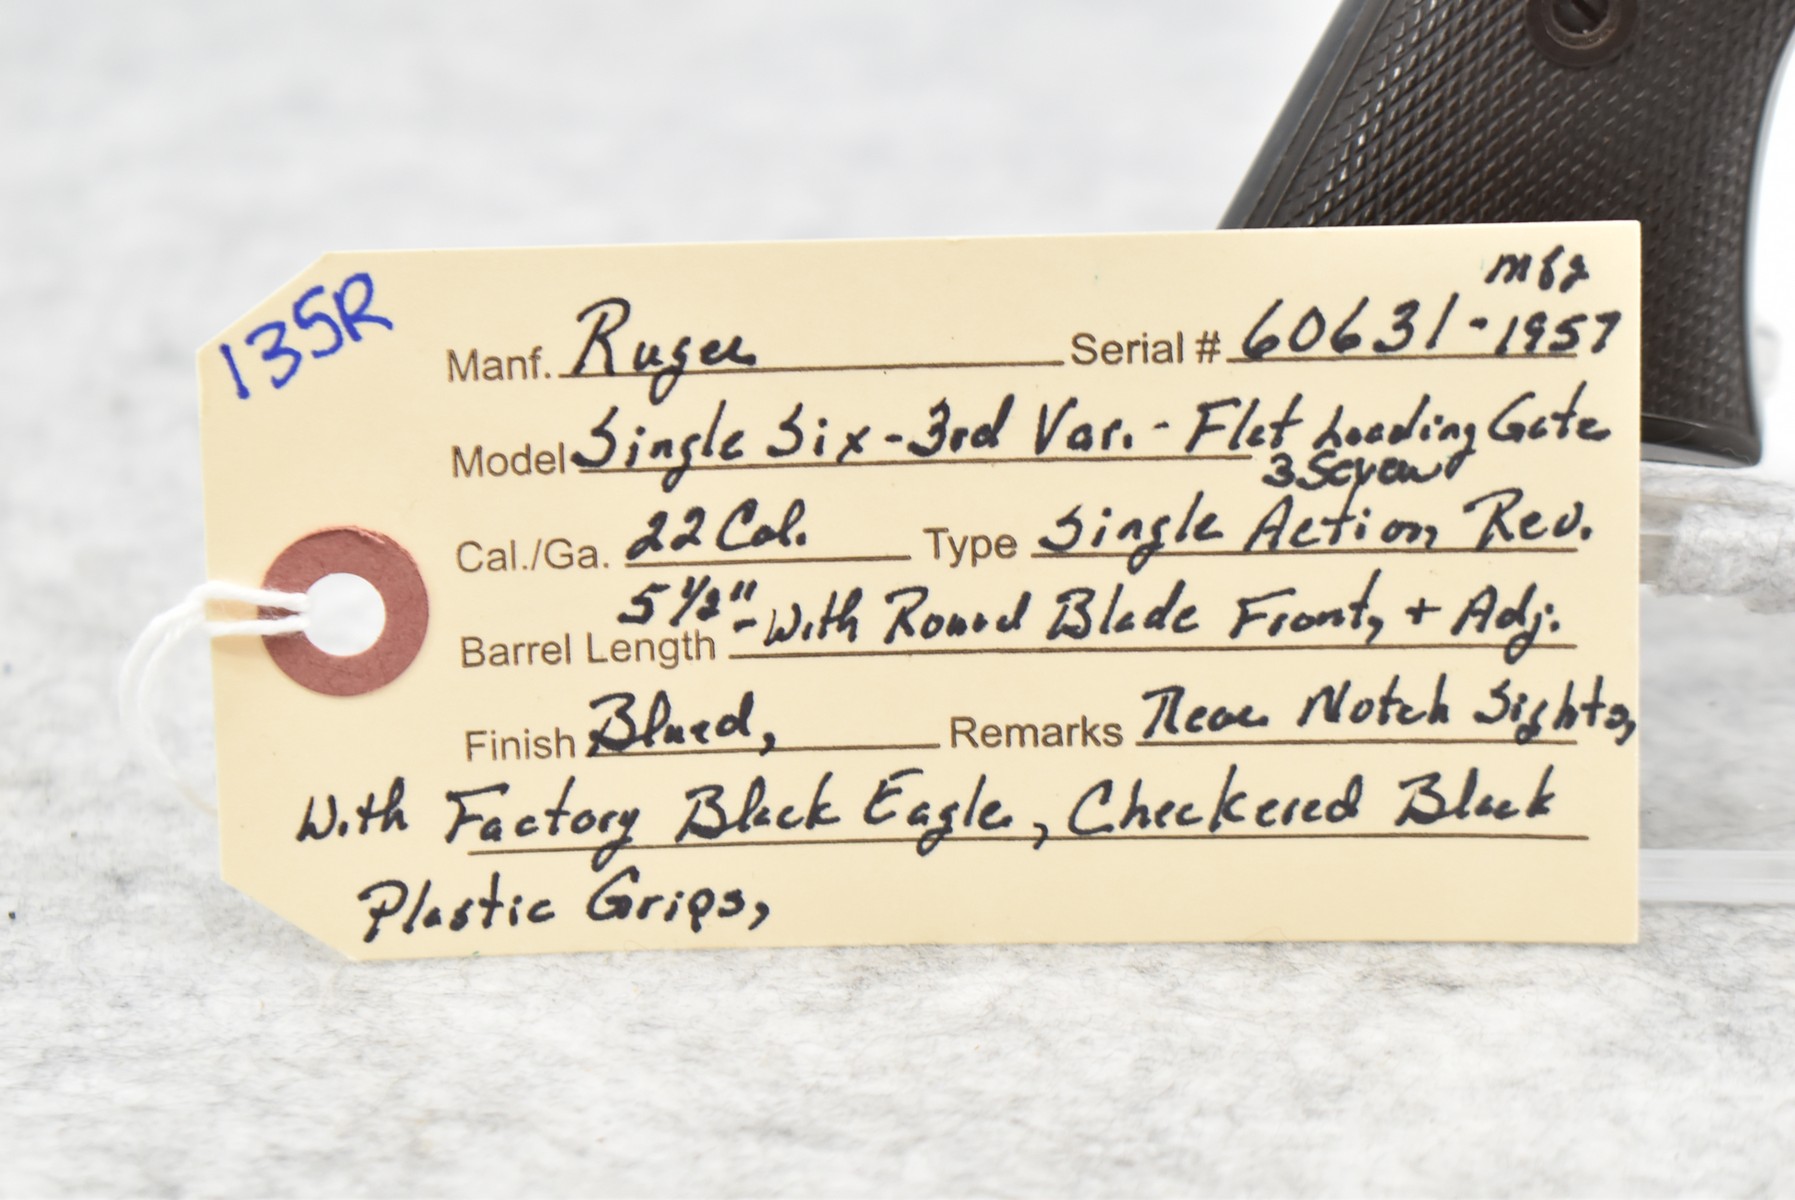 135R
mfg
Manf. Ruger Serial # 60631-1957
Model Single Six-3rd Var. - Flat Loading Gate
3 Screw
Cal./Ga. 22 Cal. Type Single Action, Rev.
Barrel Length 5 1/2" - With Round Blade Front, + Adj.
Finish Blued, Remarks Rear Notch Sights,
With Factory Black Eagle, Checkered Black
Plastic Grips,